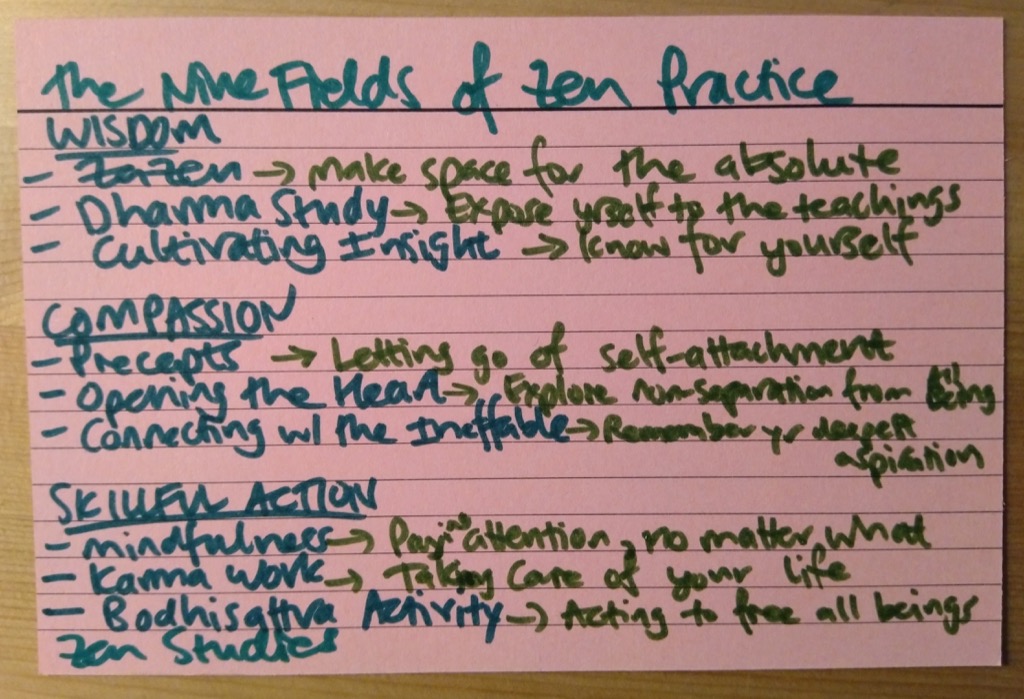 The Nine Fields of Zen Practice
WISDOM
- Zazen → make space for the absolute
- Dharma Study → Expose yrself to the teachings
- Cultivating Insight → Know for yourself
COMPASSION
- Precepts → Letting go of self-attachment
- Opening the Heart → Explore non-separation from all being
- Connecting w/ the Ineffable → Remember yr deepest
aspiration
SKILLFUL ACTION
- mindfulness → Paying attention, no matter what
- Karma work → Taking Care of your life
- Bodhisattva Activity → Acting to free all beings
Zen Studies